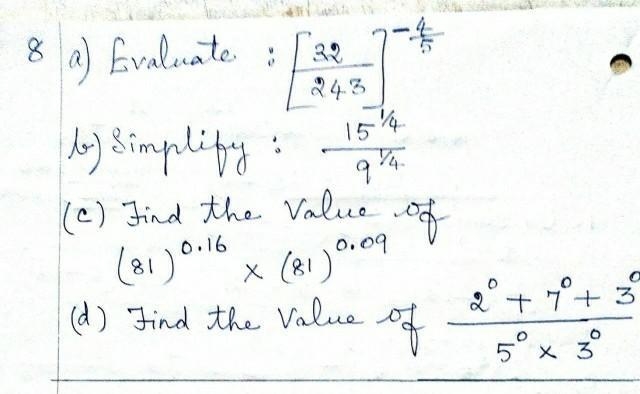 8 a) Evaluate : [32/243]^(-4/5)
b) Simplify : 15^(1/4) / 9^(1/4)
(c) Find the Value of
(81)^0.16 x (81)^0.09
(d) Find the Value of (2^0 + 7^0 + 3^0) / (5^0 x 3^0)